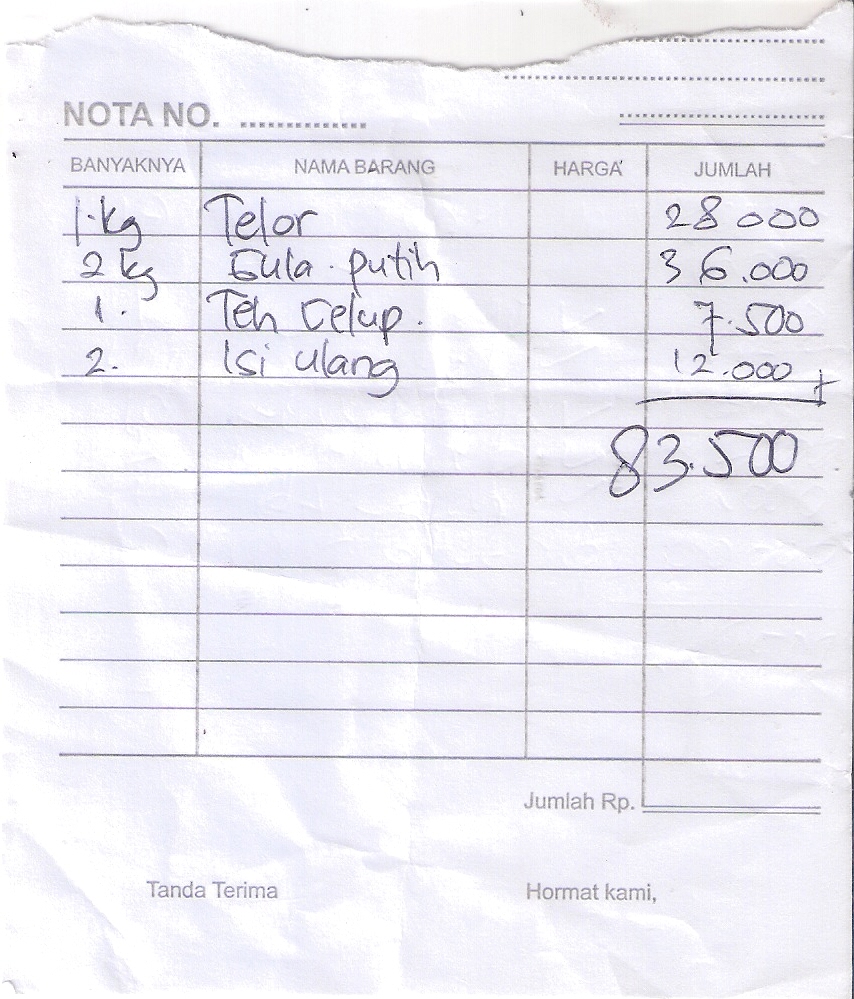 NOTA NO. ................
BANYAKNYA NAMA BARANG HARGA JUMLAH
1 kg Telor 28 000
2 kg Gula putih 36.000
1. Teh Celup. 7.500
2. Isi ulang 12.000 +
83.500
Jumlah Rp.
Tanda Terima Hormat kami,